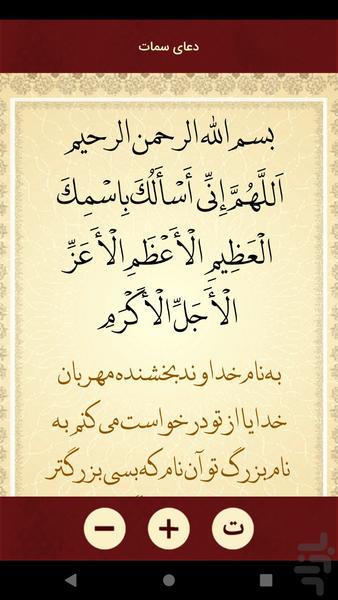 دعای سمات
بسم الله الرحمن الرحیم
اَللَّهُمَّ إِنِّی أَسْأَلُکَ بِاسْمِکَ
الْعَظِیمِ الْأَعْظَمِ الْأَعَزِّ
الْأَجَلِّ الْأَکْرَمِ
به نام خداوند بخشنده مهربان
خدایا از تو درخواست می کنم به
نام بزرگ تو آن نام که بسی بزرگتر
ت
بازار